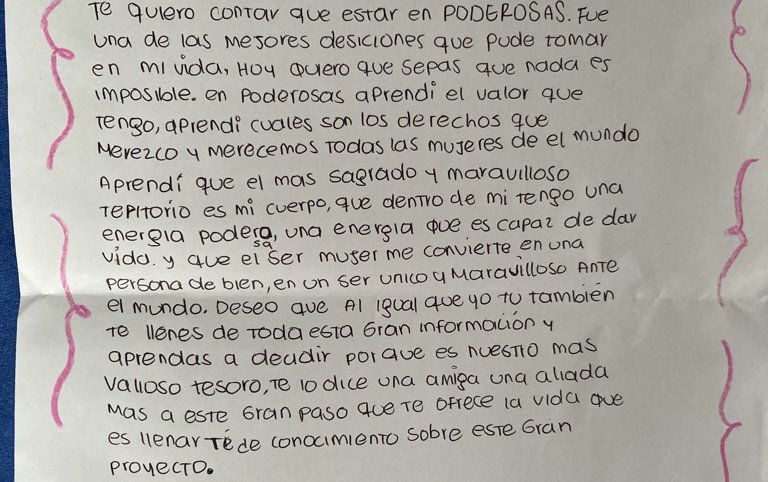 Te quiero contar que estar en PODEROSAS. Fue
una de las mejores desiciones que pude tomar
en mi vida, Hoy quiero que sepas que nada es
imposible. en Poderosas aprendí el valor que
tengo, aprendi cuales son los derechos que
Merezco y merecemos todas las mujeres de el mundo
Aprendí que el mas sagrado y maravilloso
territorio es mi cuerpo, que dentro de mi tengo una
energia poderosa, una energia que es capaz de dar
vida. y que el ser mujer me convierte en una
persona de bien, en un ser unico y Maravilloso ANTE
el mundo. Deseo que Al igual que yo tu también
te llenes de toda esta Gran información y
aprendas a decidir porque es nuestro mas
valioso tesoro, Te lo dice una amiga una aliada
Mas a este Gran paso que te ofrece la vida que
es llenarTé de conocimiento sobre este Gran
proyecto.